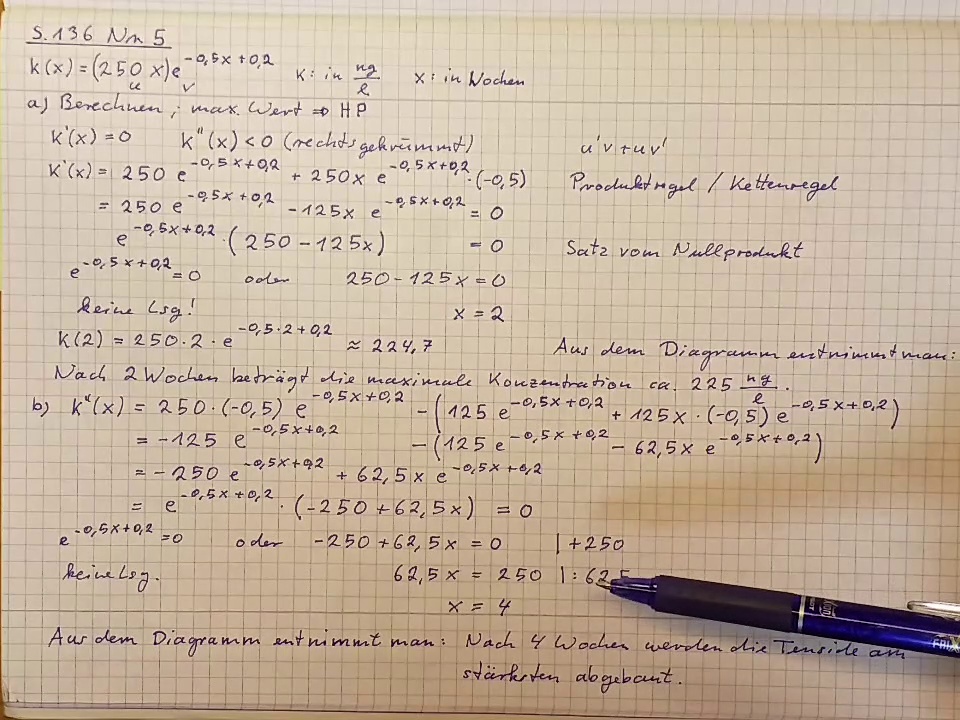 S. 136 Nr. 5
k(x) = (250 x) e^{-0,5x+0,2}   K: in ng/l   x: in Wochen
u v
a) Berechnen; max. Wert ⇒ HP
k'(x) = 0   k''(x) < 0 (rechtsgekrümmt)   u'v + uv'
k'(x) = 250 e^{-0,5x+0,2} + 250x e^{-0,5x+0,2} · (-0,5)   Produktregel / Kettenregel
= 250 e^{-0,5x+0,2} - 125x e^{-0,5x+0,2} = 0
e^{-0,5x+0,2} · (250 - 125x) = 0   Satz vom Nullprodukt
e^{-0,5x+0,2} = 0   oder   250 - 125x = 0
keine Lsg!   x = 2
K(2) = 250 · 2 · e^{-0,5·2+0,2} ≈ 224,7   Aus dem Diagramm entnimmt man:
Nach 2 Wochen beträgt die maximale Konzentration ca. 225 ng/l.
b) k''(x) = 250 · (-0,5) e^{-0,5x+0,2} - (125 e^{-0,5x+0,2} + 125x · (-0,5) e^{-0,5x+0,2})
= -125 e^{-0,5x+0,2} - (125 e^{-0,5x+0,2} - 62,5x e^{-0,5x+0,2})
= -250 e^{-0,5x+0,2} + 62,5x e^{-0,5x+0,2}
= e^{-0,5x+0,2} · (-250 + 62,5x) = 0
e^{-0,5x+0,2} = 0   oder   -250 + 62,5x = 0   | +250
keine Lsg.   62,5x = 250   | : 62,5
x = 4
Aus dem Diagramm entnimmt man: Nach 4 Wochen werden die Tenside am
stärksten abgebaut.